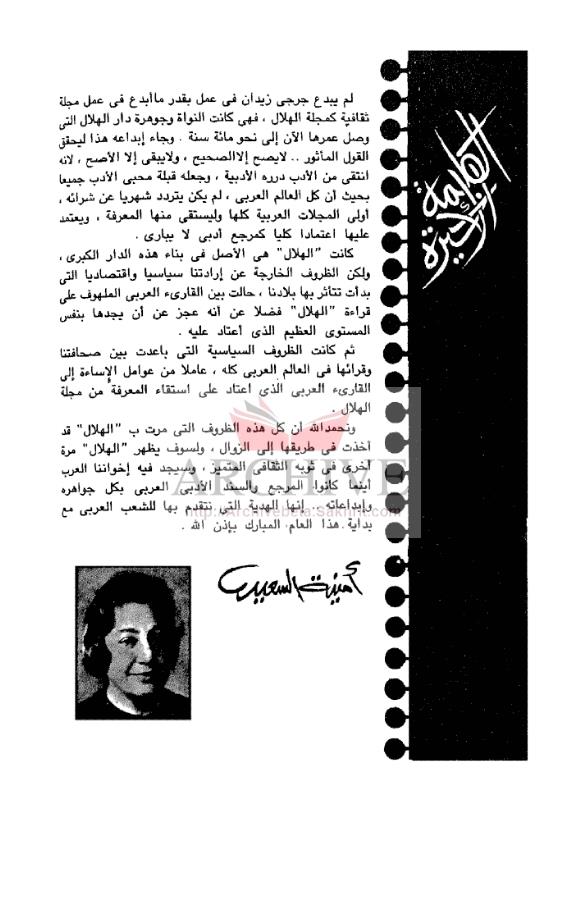 الكلمة
الأخيرة
لم يبدع جرجى زيدان فى عمل بقدر ماأبدع فى عمل مجلة
ثقافية كمجلة الهلال ، فهى كانت النواة وجوهرة دار الهلال التى
وصل عمرها الآن إلى نحو مائة سنة . وجاء إبداعه هذا ليحقق
القول المأثور .. لايصح إلاالصحيح ، ولايبقى إلا الأصح ، لانه
انتقى من الأدب درره الأدبية ، وجعله قبلة محبى الأدب جميعا
بحيث أن كل العالم العربى ، لم يكن يتردد شهريا عن شرائه ،
أولى المجلات العربية كلها وليستقى منها المعرفة ، ويعتمد
عليها اعتمادا كليا كمرجع أدبى لا يبارى .
كانت "الهلال" هى الأصل فى بناء هذه الدار الكبرى ،
ولكن الظروف الخارجة عن إرادتنا سياسيا واقتصاديا التى
بدأت تتأثر بها بلادنا ، حالت بين القارىء العربى الملهوف على
قراءة "الهلال" فضلا عن أنه عجز عن أن يجدها بنفس
المستوى العظيم الذى أعتاد عليه .
ثم كانت الظروف السياسية التى باعدت بين صحافتنا
وقرائها فى العالم العربى كله ، عاملا من عوامل الإساءة إلى
القارىء العربى الذى اعتاد على استقاء المعرفة من مجلة
الهلال .
ونحمدالله أن كل هذه الظروف التى مرت ب "الهلال" قد
أخذت فى طريقها إلى الزوال ، ولسوف يظهر "الهلال" مرة
أخرى فى ثوبه الثقافى المتميز ، وسيجد فيه إخواننا العرب
أينما كانوا المرجع والسند الأدبى العربى بكل جواهره
وإبداعاته .. إنها الهدية التى نتقدم بها للشعب العربى مع
بداية هذا العام المبارك بإذن الله .
ARCHIVE
http://Archivebeta.Sakhrit.com
أمينة السعيد